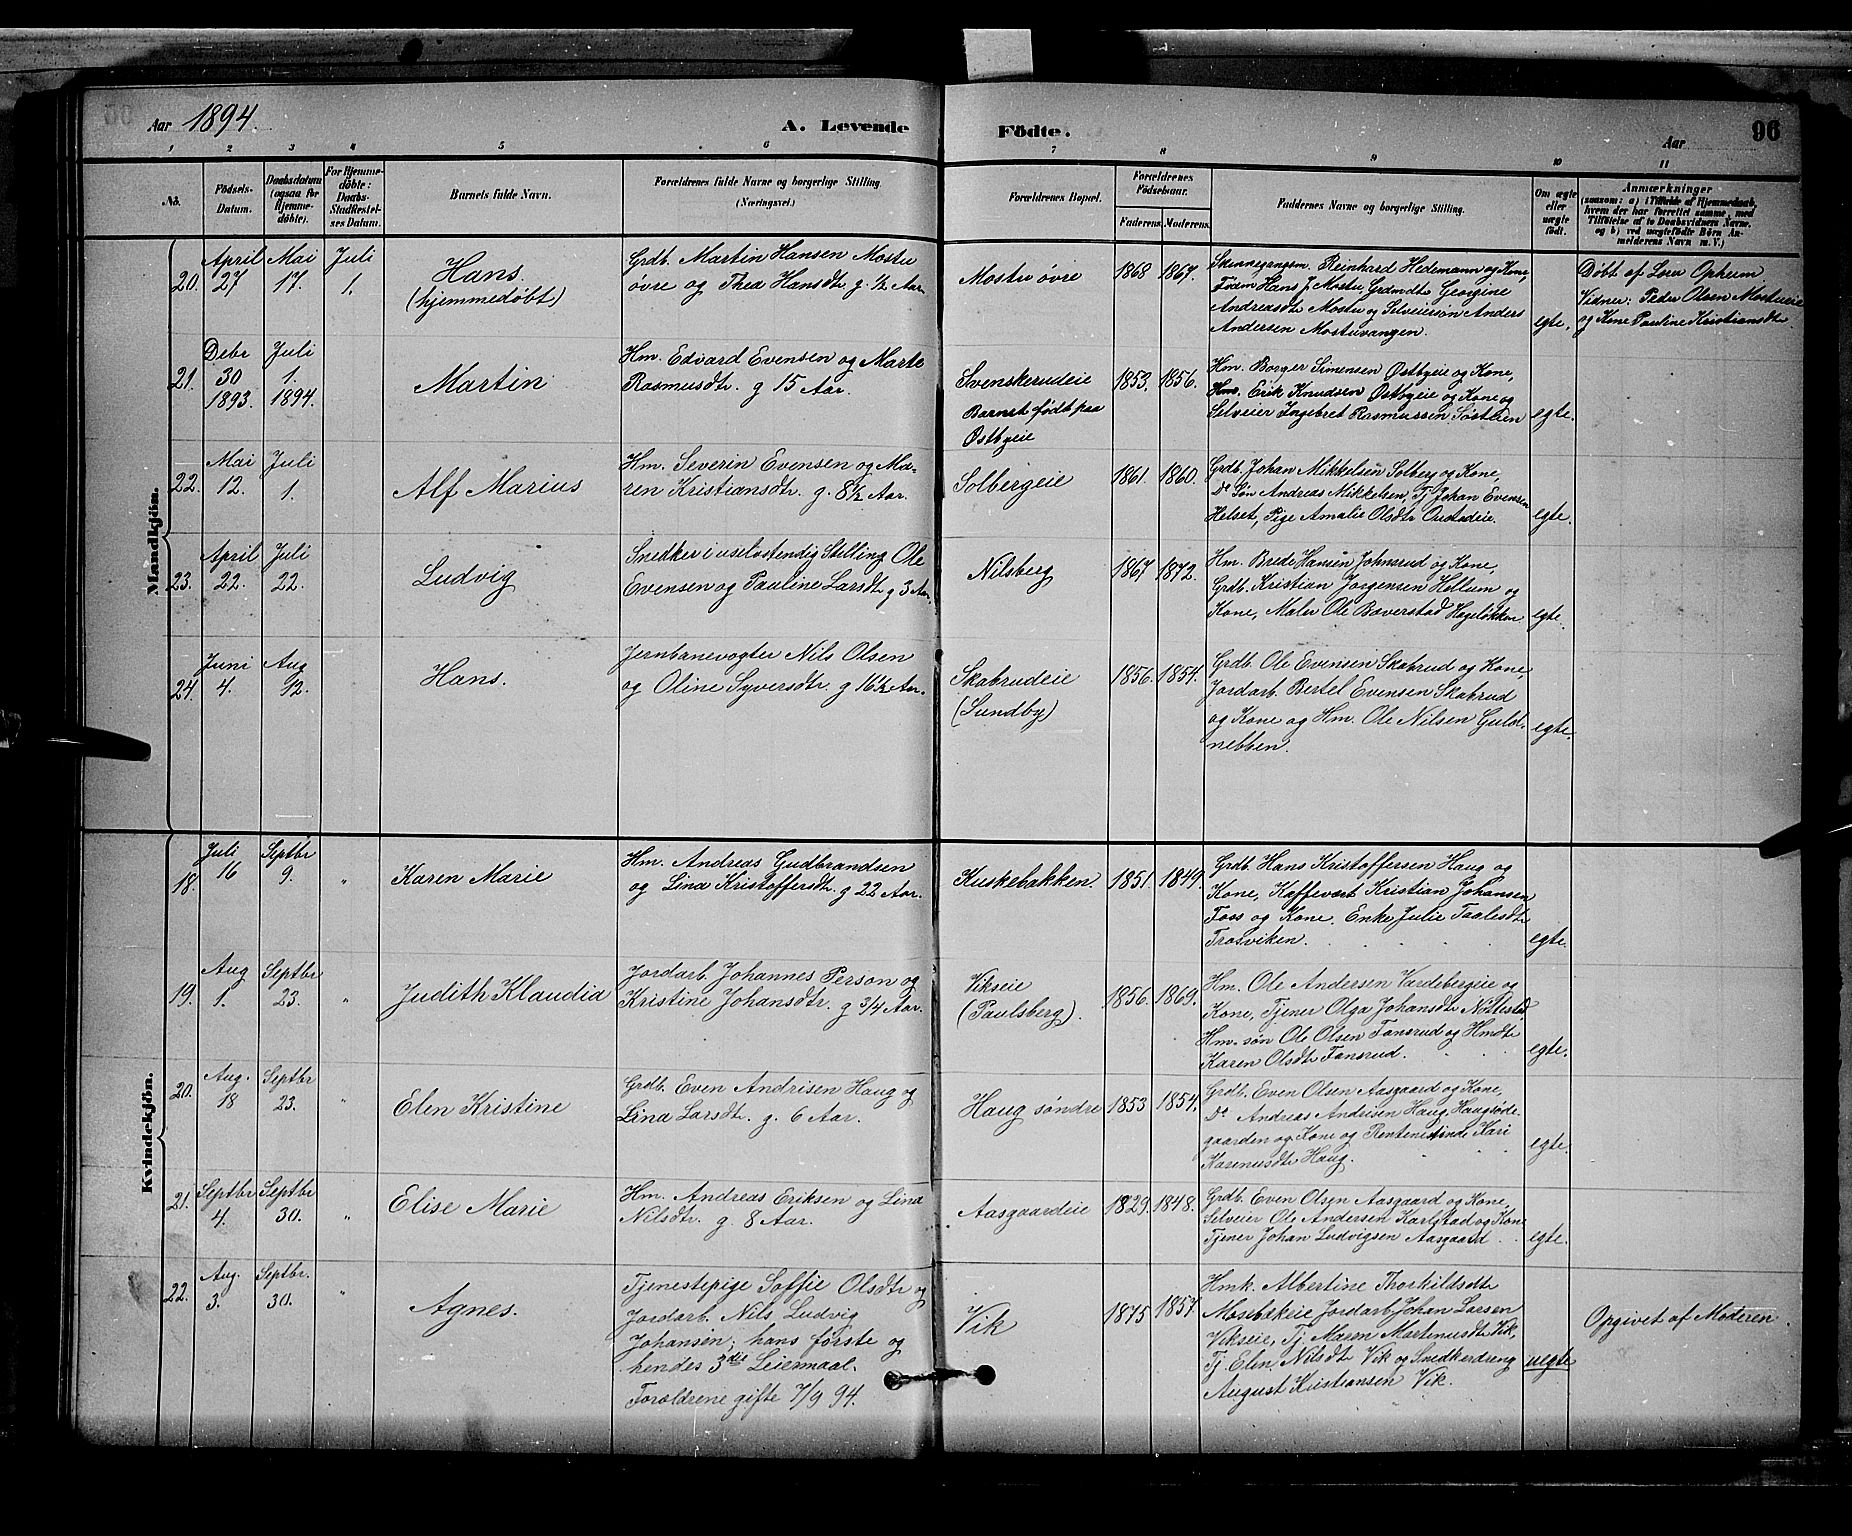 Aar 1894. A. Levende Födte. Aar 96
1 2 3 4 5 6 7 8 9 10 11
No. Födsels-Datum. Daabsdatum (ogsaa for Hjemmedöbte). For Hjemmedöbte: Daabs-Stadfæstelses Datum. Barnets fulde Navn. Forældrenes fulde Navne og borgerlige Stilling. (Næringsvei.) Forældrenes Bopæl. Forældrenes Födselsaar. Faderens. Moderens. Faddernes Navne og borgerlige Stilling. Om ægte eller uægte födt. Anmærkninger (saasom: a) i Tilfælde af Hjemmedaab, hvem der har forrettet samme, med Tilföielse af to Daabsvidners Navne, og b) ved uægtefödte Börn Anmelderens Navn m. V.)
Mandkjön.
20. April 27 Mai 17. Juli 1.
Hans.
(hjemmedöbt)
Grdb. Martin Hansen Mostu
övre og Thea Hansdtr. g. 1/2 Aar.
Mostu övre 1868 1867.
Skinnegangsm. Reinhard Hedemann og Kone,
Hans J. Mostu, Grdmdtr Georgine
Andreasdtr Mostu og Selveiersön Anders
Andersen Mostuvangen.
egte.
Döbt af Opheim
Vidner: Peder Olsen Mostueie
og Kone Pauline Kristiansdtr
21. Debr 30 1893. Juli 1. 1894.
Martin
Hm. Edvard Evensen og Marte
Rasmusdtr. g 15 Aar.
Svenskerudeie
Barnet födt paa
Östbyeie
1853. 1856.
Hm. Borger Simensen Östbyeie og Kone,
Hm. Erik Knudsen Östbyeie og Kone og
Selveier Ingebret Rasmussen Söstlien
egte.
22. Mai 12. Juli 1.
Alf Marius
Hm. Severin Evensen og Ma-
ren Kristiansdtr. g. 8 1/2 Aar.
Solbergeie 1861. 1860.
Grdb. Johan Mikkelsen Solberg og Kone,
Do Sön Andreas Mikkelsen, Tj. Johan Evensen
Helset, Pige Amalie Olsdtr
egte.
23. April 22. Juli 22.
Ludvig
Snedker i uselvstendig Stilling Ole
Evensen og Pauline Larsdtr g 3 Aar.
Nilsberg 1867 1872.
Hm. Brede Hansen Johnsrud og Kone,
Grdb. Kristian Jörgensen Hellum og
Kone, Maler Ole Bæverstad Hagelökken
egte.
24. Juni 4. Aug 12.
Hans.
Jernbanevogter Nils Olsen
og Oline Syversdtr. g 16 1/2 Aar.
Skabrudeie
(Sundby)
1856. 1854.
Grdb. Ole Evensen Skabrud og Kone,
Jordarb. Bertel Evensen Skabrud
og Kone og Hm. Ole Nilsen Guld-
nebben.
egte.
Kvindekjön.
18. Juli 16 Septbr 9. "
Karen Marie
Hm. Andreas Gudbrandsen
og Lina Kristoffersdtr. g 22 Aar.
Kuskebakken. 1851. 1849.
Grdb. Hans Kristoffersen Haug og
Kone, Kaffevært Kristian Johansen
Foss og Kone. Enke Julie Paalesdtr
Trosviken.
egte.
19. Aug 1. Septbr 23. "
Judith Klaudia
Jordarb. Johannes Person og
Kristine Johansdtr. g 3/4 Aar.
Vikseie
(Paulsberg).
1856. 1869.
Hm. Ole Andersen Vardebergeie og
Kone, Tjener Olga Johansdtr Nöttestad
Hm.sön Ole Olsen Fansrud og Hmdtr
Karen Olsdtr Fansrud.
egte.
20. Aug. 18 Septbr 23. "
Elen Kristine
Grdb. Even Andrisen Haug og
Lina Larsdtr. g. 6 Aar.
Haug söndre 1853 1854.
Grdb. Even Olsen Aasgaard og Kone,
Do Andreas Andrisen Haug, Haugsöde-
gaarden og Kone og Rentenistinde Kari
Karenusdtr Haug.
egte.
21. Septbr 4. Septbr 30. "
Elise Marie
Hm. Andreas Eriksen og Lina
Nilsdtr. g. 8 Aar.
Aasgaardeie 1829. 1848.
Grdb. Even Olsen Aasgaard og Kone,
Selveier Ole Andersen Karlstad og Kone
Tjener Johan Ludvigsen Aasgaard.
egte.
22. Aug. 3. Septbr. 30. "
Agnes.
Tjenestepige Soffie Olsdtr og
Jordarb. Nils Ludvig
Johansen; hans förste og
hendes 3die Leiermaal.
Foreldrene gifte 7/9 94.
Vik 1875 1857.
Hmk. Albertine Thorkildsdtr
Mosebækeie Jordarb. Johan Larsen
Vikseie, Tj. Maren Martenusdtr Vik,
Tj. Elen Nilsdtr Vik og Snedkerdreng
August Kristiansen Vik.
uegte
Opgivet af Moderen.